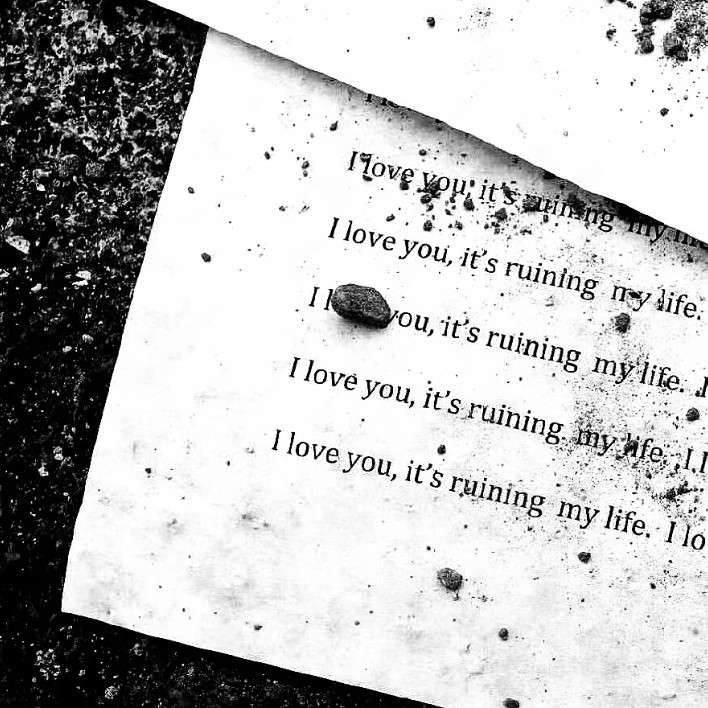 I love you, it's ruining my
I love you, it's ruining my life.
I you, it's ruining my life.
I love you, it's ruining my life. I
I love you, it's ruining my life. I lo